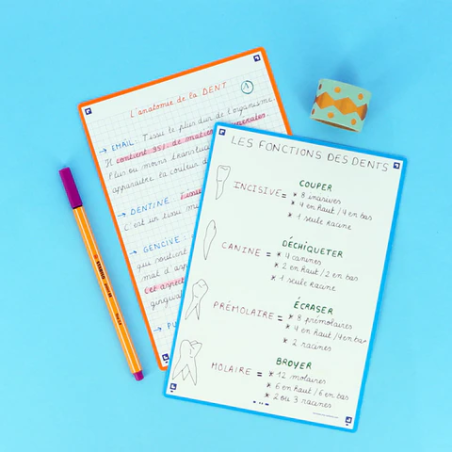 L'anatomie de la DENT
1
→ EMAIL : Tissu le plus dur de l'organisme
Il contient 95% de matière
Plus ou moins
apparaître la couleur d
→ DENTINE :
C'est un tissu
→ GENCIVE :
qui
mat d'asp
Cet aspect
gingiva
→ PU
LES FONCTIONS DES DENTS
INCISIVE = COUPER
* 8 incisives
* 4 en haut / 4 en bas
* 1 seule racine
CANINE = DÉCHIQUETER
* 4 canines
* 2 en haut / 2 en bas
* 1 seule racine
PRÉMOLAIRE = ÉCRASER
* 8 prémolaires
* 4 en haut / 4 en bas
* 2 racines
MOLAIRE = BROYER
* 12 molaires
* 6 en haut / 6 en bas
* 2 ou 3 racines